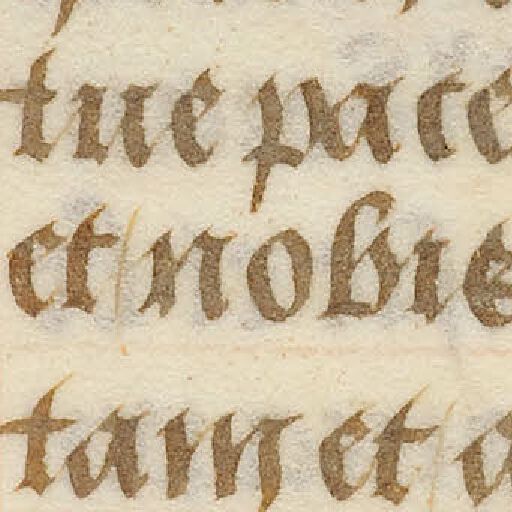 tue pace
et nobis
tam et a